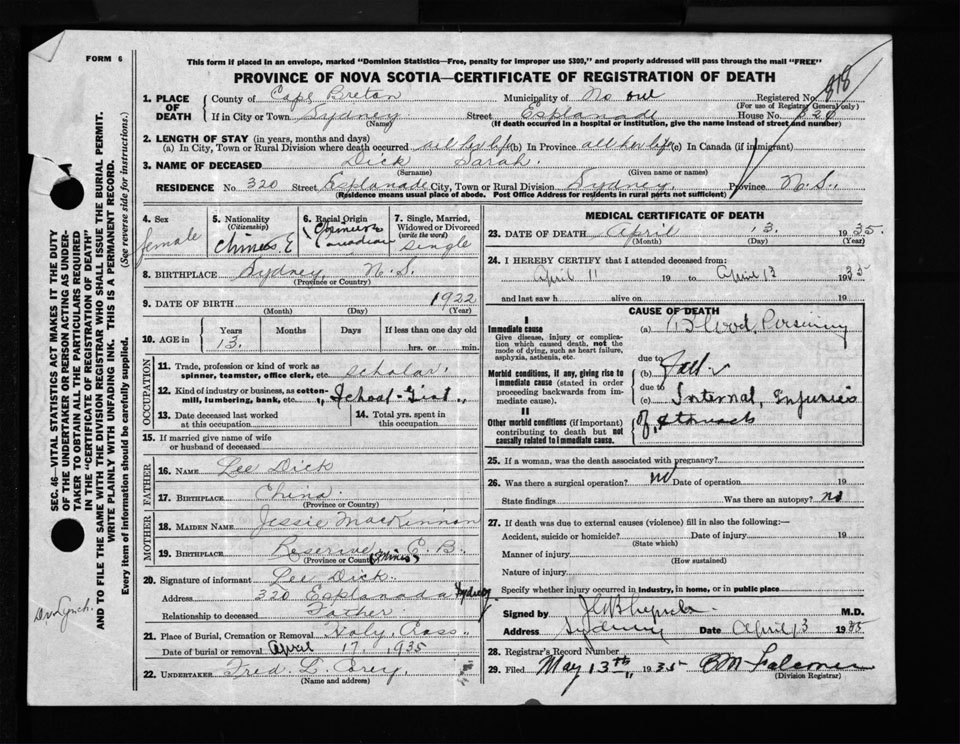 FORM 6
This form if placed in an envelope, marked "Dominion Statistics—Free, penalty for improper use $300," and properly addressed will pass through the mail "FREE"
PROVINCE OF NOVA SCOTIA—CERTIFICATE OF REGISTRATION OF DEATH
818
1. PLACE OF DEATH County of Cape Breton Municipality of No Registered No.
(For use of Registrar General only)
If in City or Town Sydney Street Esplanade House No. 320
(Name) (If death occurred in a hospital or institution, give the name instead of street and number)
2. LENGTH OF STAY (in years, months and days)
(a) In City, Town or Rural Division where death occurred all her life (b) In Province all her life (c) In Canada (if immigrant)
3. NAME OF DECEASED Dick Sarah.
(Surname) (Given name or names)
RESIDENCE No. 320 Street Esplanade City, Town or Rural Division Sydney, Province N.S.,
(Residence means usual place of abode. Post Office Address for residents in rural parts not sufficient)
4. Sex
female
5. Nationality
(Citizenship)
6. Racial Origin
Canadian
7. Single, Married, Widowed or Divorced
(write the word)
single
8. BIRTHPLACE Sydney, N.S.
(Province or Country)
9. DATE OF BIRTH 1922
(Month) (Day) (Year)
10. AGE in Years Months Days If less than one day old
13. hrs. or min.
OCCUPATION
11. Trade, profession or kind of work as spinner, teamster, office clerk, etc. scholar.
12. Kind of industry or business, as cotton-mill, lumbering, bank, etc. School-Girl.,
13. Date deceased last worked at this occupation
14. Total yrs. spent in this occupation
15. If married give name of wife or husband of deceased
FATHER
16. NAME Lee Dick
17. BIRTHPLACE China.
MOTHER
18. MAIDEN NAME Jessie MacKinnon
19. BIRTHPLACE Reserve C.B.
(Province or Country)
20. Signature of informant Lee Dick.
Address 320 Esplanade Sydney
Relationship to deceased Father.
21. Place of Burial, Cremation or Removal Holy Cross.
Date of burial or removal April 17, 1935
22. UNDERTAKER Fred. L.
(Name and address)
MEDICAL CERTIFICATE OF DEATH
23. DATE OF DEATH April 13. 1935.
(Month) (Day) (Year)
24. I HEREBY CERTIFY that I attended deceased from:
April 11 19 to April 13 1935
and last saw h alive on 19
CAUSE OF DEATH
I
Immediate cause
Give disease, injury or complication which caused death, not the mode of dying, such as heart failure, asphyxia, asthenia, etc.
(a) Blood Poisoning
due to
Morbid conditions, if any, giving rise to immediate cause (stated in order proceeding backwards from immediate cause).
(b) Fall
due to
(c) Internal, Injuries
II
Other morbid conditions (if important) contributing to death but not causally related to immediate cause.
of, stomach
25. If a woman, was the death associated with pregnancy?
26. Was there a surgical operation? no Date of operation 19
State findings Was there an autopsy? no
27. If death was due to external causes (violence) fill in also the following:—
Accident, suicide or homicide? Date of injury 19
(State which)
Manner of injury
(How sustained)
Nature of injury
Specify whether injury occurred in industry, in home, or in public place
Signed by M.D.
Address Sydney Date April 13 1935
28. Registrar's Record Number
29. Filed May 13th, 1935
(Division Registrar)
SEC. 46—VITAL STATISTICS ACT MAKES IT THE DUTY
OF THE UNDERTAKER OR PERSON ACTING AS UNDER-
TAKER TO OBTAIN ALL THE PARTICULARS REQUIRED
IN THE "CERTIFICATE OF REGISTRATION OF DEATH"
AND TO FILE THE SAME WITH THE DIVISION REGISTRAR WHO SHALL ISSUE THE BURIAL PERMIT.
WRITE PLAINLY WITH UNFADING INK. THIS IS A PERMANENT RECORD.
Every item of information should be carefully supplied. (See reverse side for instructions.)
Dr. Lynch.